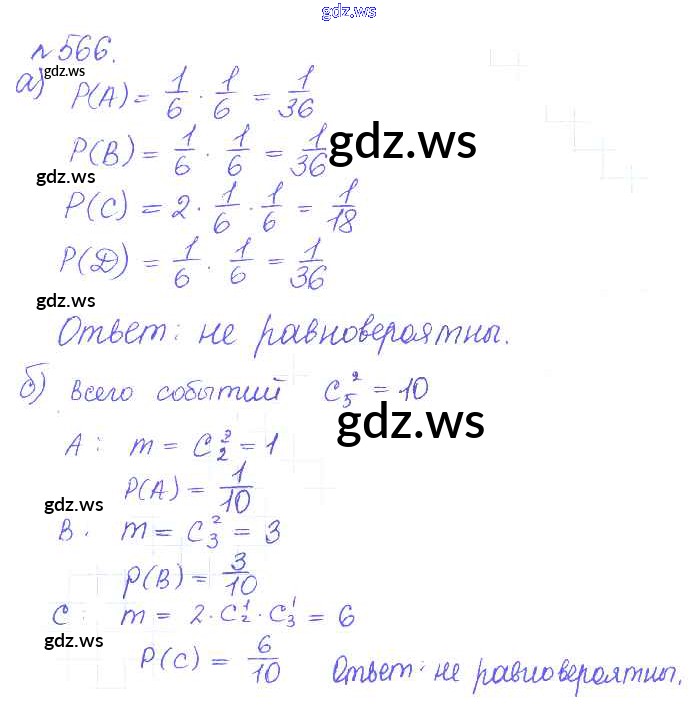 gdz.ws
№ 566.
gdz.ws
а) P(A) = 1/6 · 1/6 = 1/36
P(B) = 1/6 · 1/6 = 1/36
gdz.ws
gdz.ws
P(C) = 2 · 1/6 · 1/6 = 1/18
P(D) = 1/6 · 1/6 = 1/36
gdz.ws
Ответ: не равновероятны.
б) всего событий C₅² = 10
gdz.ws
A: m = C₂² = 1
P(A) = 1/10
gdz.ws
B. m = C₃² = 3
P(B) = 3/10
C: m = 2·C₂¹·C₃¹ = 6
gdz.ws
P(C) = 6/10 Ответ: не равновероятны.